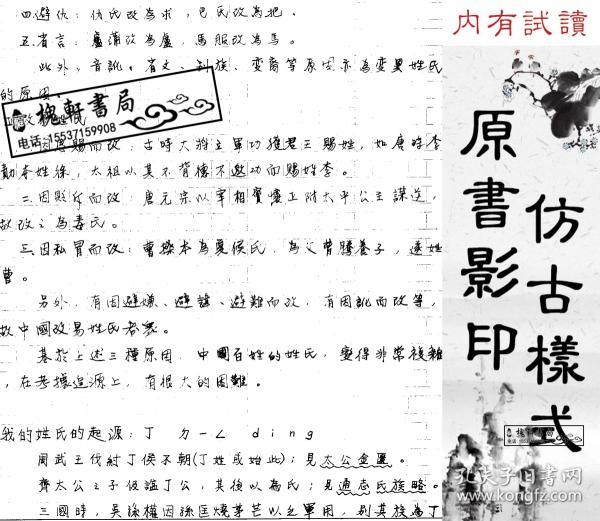 四避仇：仇氏改為求，巳氏改為杞。
五省言：盧蒲改為盧，馬服改為馬。
此外，音訛、省文、別族、變裔等原因亦為變異姓氏
的原因。
改
姓氏
恩賜而改：古時大將立軍功獲君王賜姓，如唐時李
勣本姓徐，太祖以其不背德不邀功而賜姓李。
二因貶斥而改：唐元宗以宰相竇懷正附太平公主謀逆，
故改之為毒氏。
三因私冒而改：曹操本為夏侯氏，為父曹騰養子，遂姓
曹。
另外，有因避嫌、避諱、避難而改，有因訛而改等，
故中國改易姓氏者衆。
基於上述三種原因，中國百姓的姓氏，變得非常複雜
，在考據追源上，有很大的困難。
我的姓氏的起源：丁 ㄉㄧㄥ ding
周武王伐紂丁侯不朝(丁姓或始此)；見太公金匱。
齊太公之子伋諡丁公，其後以為氏；見通志氏族略。
三國時，吳孫權因孫匡燒茅芒以乏軍用，別其族為丁
槐軒書局
电话:15537159908
内有試讀
原書影印
仿古樣式
槐軒書局
孔夫子旧书网
www.kongfz.com